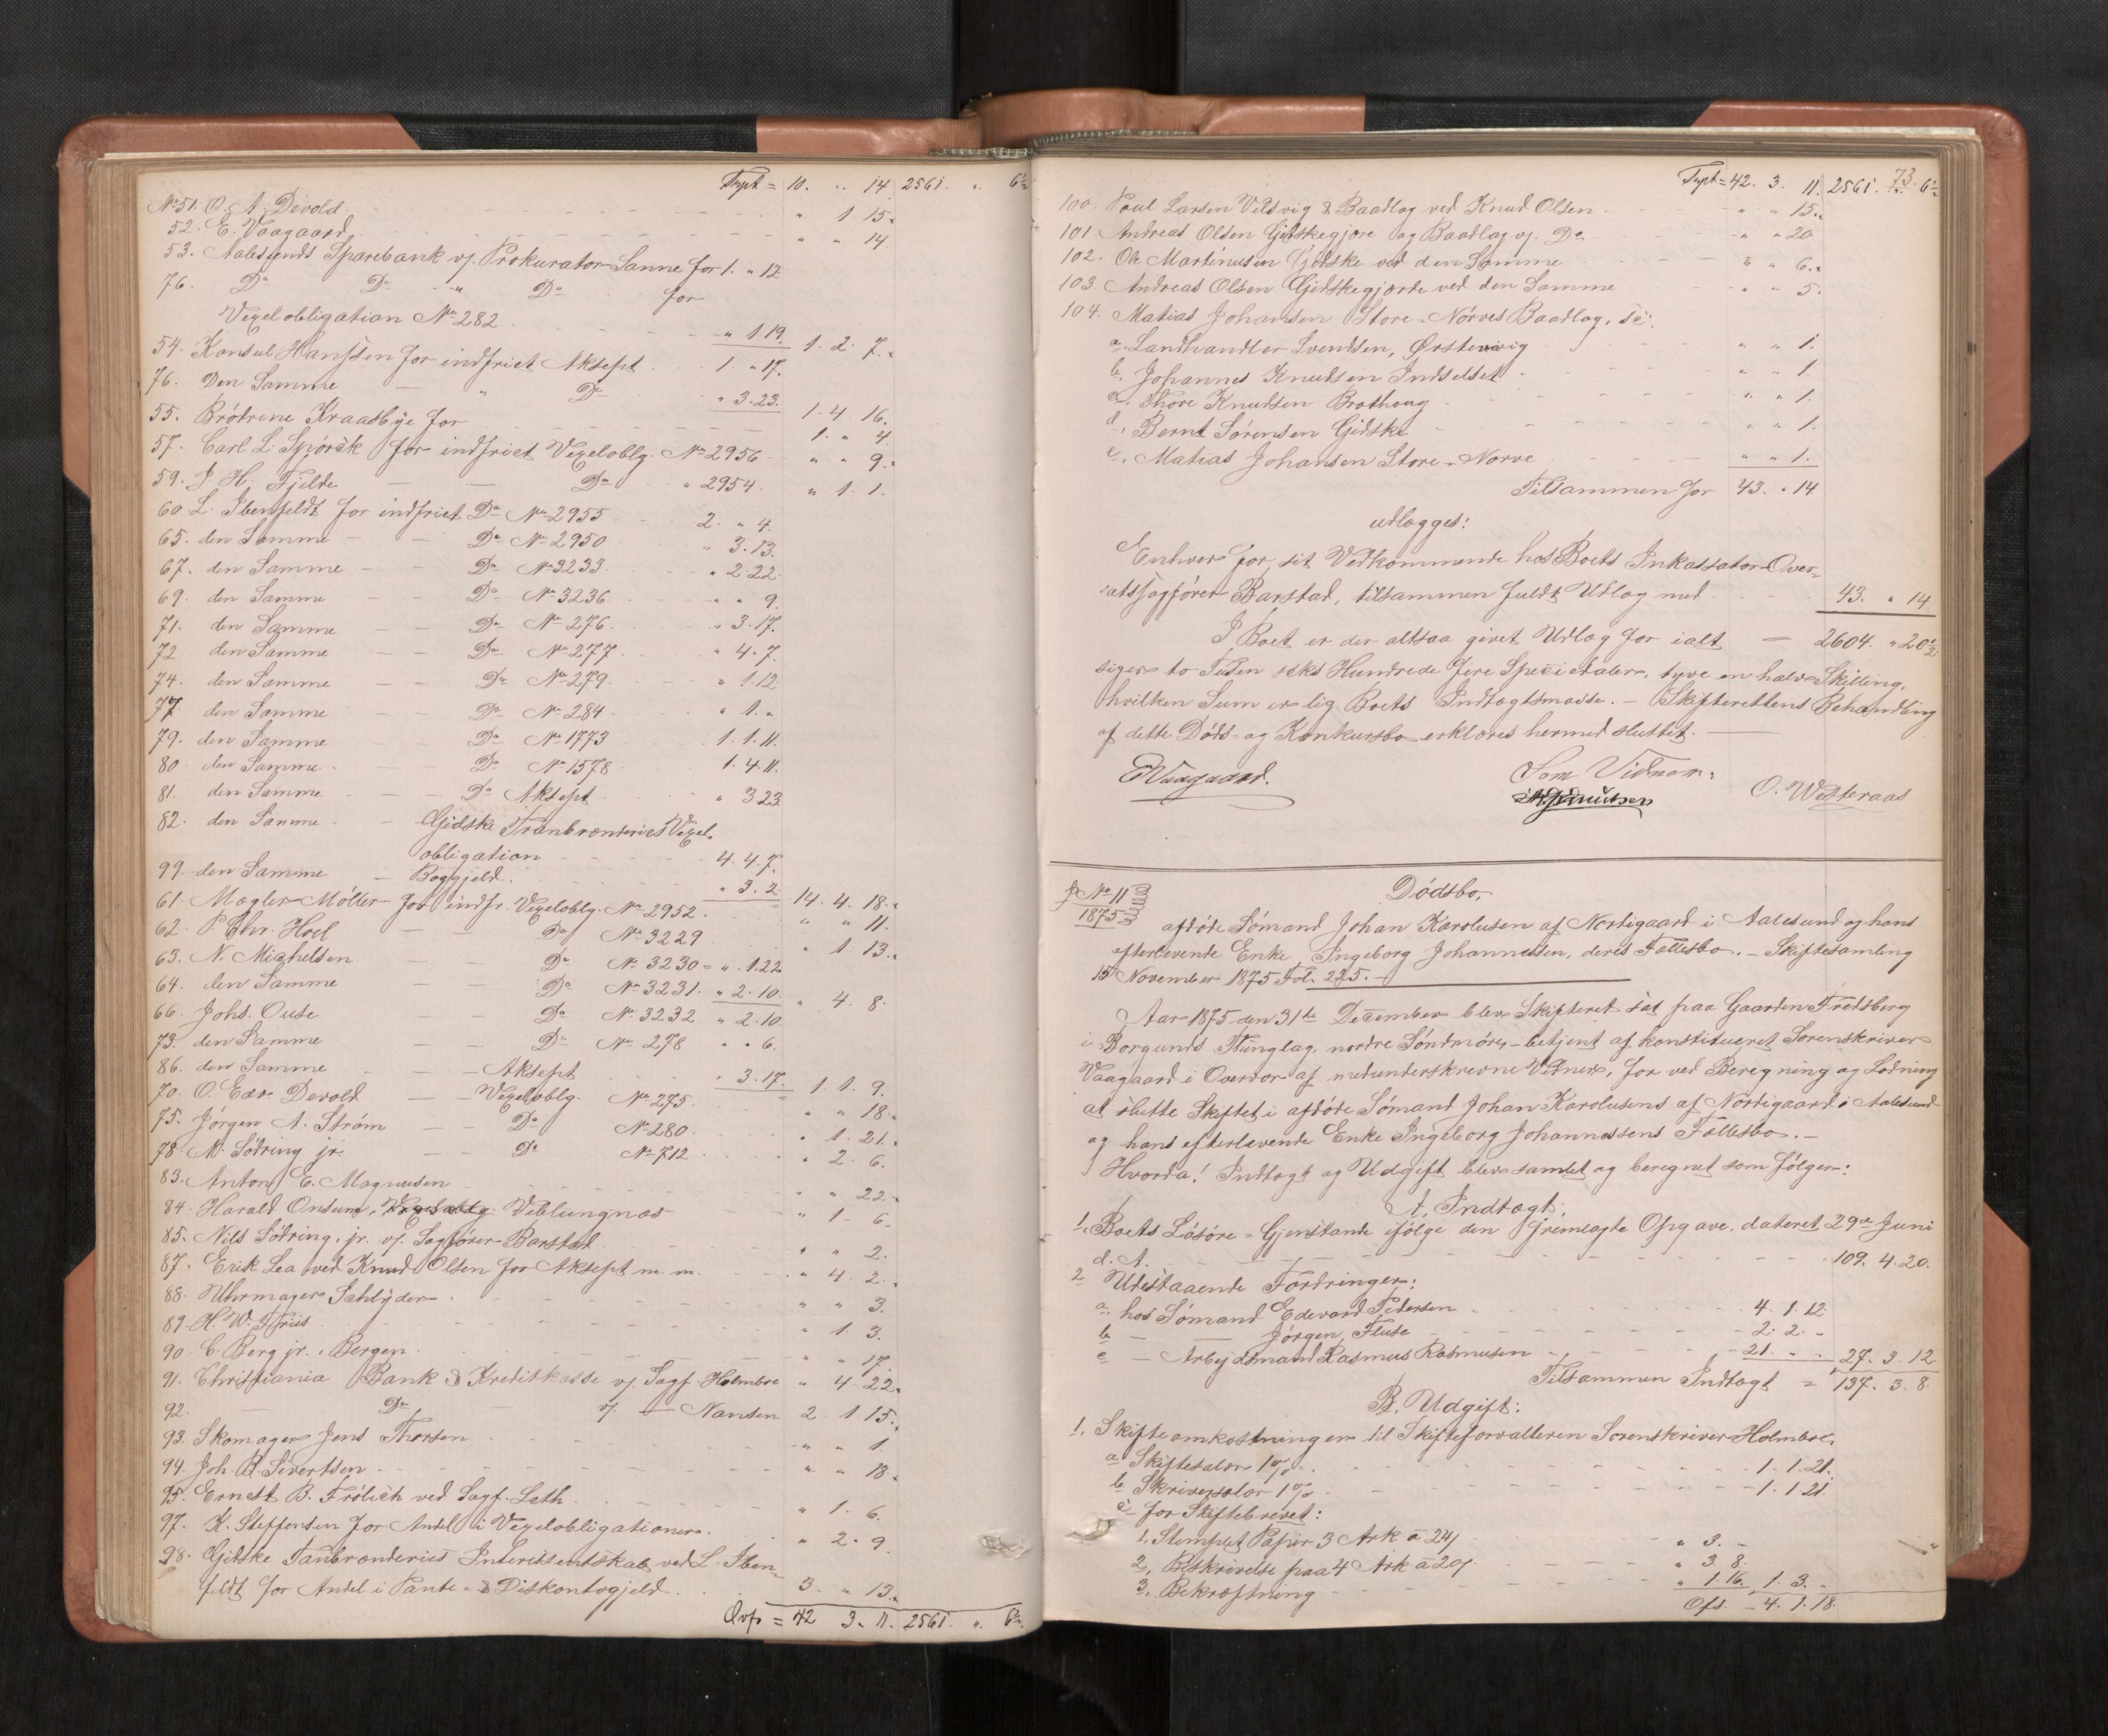 Trpt = 10. " 14 2561. " 6½
No 51. O. A. Devold " 1. 15.
52. E. Vaagaard " " 14.
53. Aalesunds Sparebank v/ Prokurator Sanne for 1. " 12
76. Do Do " Do for
Vexelobligation No 282 " 1 19. 1. 2. 7.
54. Konsul Hanssen for indfriet Aksept 1. " 17.
76. Den Samme " Do " 3. 23. 1. 4. 16.
55. Brødrene Kraasbye for 1. " 4
57. Carl L. Spørck for indfriet Vexeloblg. No 2956 " " 9.
59. P. H. Fjelde Do " 2954 " 1. 1.
60 L. Ibenfeldt for indfriet Do No 2955 2. " 4.
65. den Samme Do No 2950 " 3. 13.
67. den Samme Do No 3233 " 2. 22.
69. den Samme Do No 3236 " " 9.
71. den Samme Do No 276 " 3. 17.
72 den Samme Do No 277 " 4. 7.
74. den Samme Do No 279 " 1. 12
77. den Samme Do No 284 " 1. "
79. den Samme Do No 1773 1. 1. 11.
80. den Samme Do No 1578 1. 4. 11.
81. den Samme Do Aksept " 3 23
82. den Samme Gidske Tranbrænderies Vexel-
obligation 4. 4. 7.
99. den Samme Boggjeld. " 3. 2 14. 4. 18.
61. Mægler Møller for indfr. Vexeloblg. No 2952 " " 11.
62. P. Chr. Hoel Do No 3229 " 1. 13.
63. N. Michelsen Do No 3230 = " 1. 22
64. den Samme Do No 3231. " 2. 10. " 4. 8.
66. Johs. Ouse Do No 3232 " 2. 10
73. den Samme Do No 278 " " 6.
86. den Samme Aksept " 3. 17. 1. 1. 9.
70. O. Edv. Devold Vexeloblg. No 275 " " 18.
75. Jørgen A. Strøm Do No 280 " 1. 21.
78 N. Sødring jr. Do No 712 " 2. 6.
83. Anton E. Magnusen " " 22.
84. Harald Onsum, Veblungnæs " 1. 6.
85. Nils Sødring, jr. v/ Sagfører Barstad " " 2.
87. Erik Lea ved Knud Olsen for Aksept m. m. " 4. 2.
88. Uhrmager Schlyder " " 3.
89. H. W. Friis " 1. 3.
90. C. Berg jr. i Bergen " " 17.
91. Christiania Bank & Kreditkasse v/ Sagf. Holmboe " 4. 22.
92. Do v/ — Nansen 2. 1. 15.
93. Skomager Jens Thorsen " " 1.
94. Joh B. Sivertsen " " 18.
95. Ernest B. Frølich ved Sagf. Leth " 1. 6.
97. K. Steffensen for Andel i Vexelobligationer " 2. 9.
98. Gidske Tanbrænderies Interessentskab ved L. Iben-
feldt for Andel i Pante- & Diskontogjeld 3. " 13.
Ovf. = 42 3. 11. 2561. " 6½
73.
Trpt = 42. 3. 11. 2561. " 6½
100. Poul Larsen Vilsvig & Baadlag ved Knud Olsen " " 15.
101 Andreas Olsen Gjdskegjøre og Baadlag v/ Do " " 20
102. Ole Martinusen Gidske ved den Samme " " 6.
103. Andreas Olsen Gidskegjærde ved den Samme " " 5.
104. Matias Johansen Store-Nørves Baadlag, sc:
a. Landhandler Svendsen, Ørstenvig " " 1.
b. Johannes Knudsen Indselset " " 1.
c. Thore Knudsen Brathoug " " 1.
d. Bernt Sørensen Gidske " " 1.
e. Matias Johansen Store-Nørve " " 1.
Tilsammen for 43. " 14
udlægges:
Enhver for sit Vedkommende hos Boets Inkassator Over-
retssagfører Barstad, tilsammen fuldt Udlæg med 43. " 14.
I Boet er der altsaa givet Udlæg for ialt — 2604. " 20½
siger to Tusen seks Hundrede fire Speciedaler, tyve en halv Skilling,
hvilken Sum er lig Boets Indtægtsmasse. — Skifterettens Behandling
af dette Døds- og Konkursbo erklæres hermed sluttet. —
E Vaagaard. Som Vidner:
A. Knutsen O. Westeraas
No 11
1875
Dødsbo,
afdøde Sømand Johan Karolusen af Nørdigaard i Aalesund og hans
efterlevende Enke, Ingeborg Johannessen, deres Fællesbo. — Skiftesamling
15 November 1875 Fol. 225. —
Aar 1875 den 31te December blev Skifteret sat paa Gaarden Fredsberg
i Borgunds Thinglag, nordre Søndmøre, — betjent af konstitueret Sorenskriver
Vaagaard i Overvær af medunderskrevne Vidner, for ved Beregning og Lodning
at slutte Skiftet i afdøde Sømand Johan Karolusens af Nørdigaard i Aalesund
og hans efterlevende Enke Ingeborg Johannessens Fællesbo. —
Hvorda! Indtægt og Udgift blev samlet og beregnet som følger:
A. Indtægt:
1. Boets Løsøre-Gjenstande ifølge den fremlagte Opgave, dateret 29de Juni
d. A. 109. 4. 20.
2 Udestaaende Fordringer:
a. hos Sømand Edevard Petersen 4. 1. 12
b. — — Jørgen Fluse 2. 2. "
c — Arbejdsmand Rasmus Rasmusen 21. " " 27. 3. 12
Tilsammen Indtægt = 137. 3. 8.
B. Udgift:
1. Skifteomkostninger til Skifteforvalteren Sorenskriver Holmboe,
a Skiftesalær 1 % 1. 1. 21.
b. Skriversalær 1 % 1. 1. 21.
c for Skiftebrevet:
1. Stemplet Papir 3 Ark a 24/ " 3. "
2. Beskrivelse paa 4 Ark a 20/ " 3. 8.
3. Bekræftning " 1. 16. 1. 3. "
Ofs. 4. 1. 18.